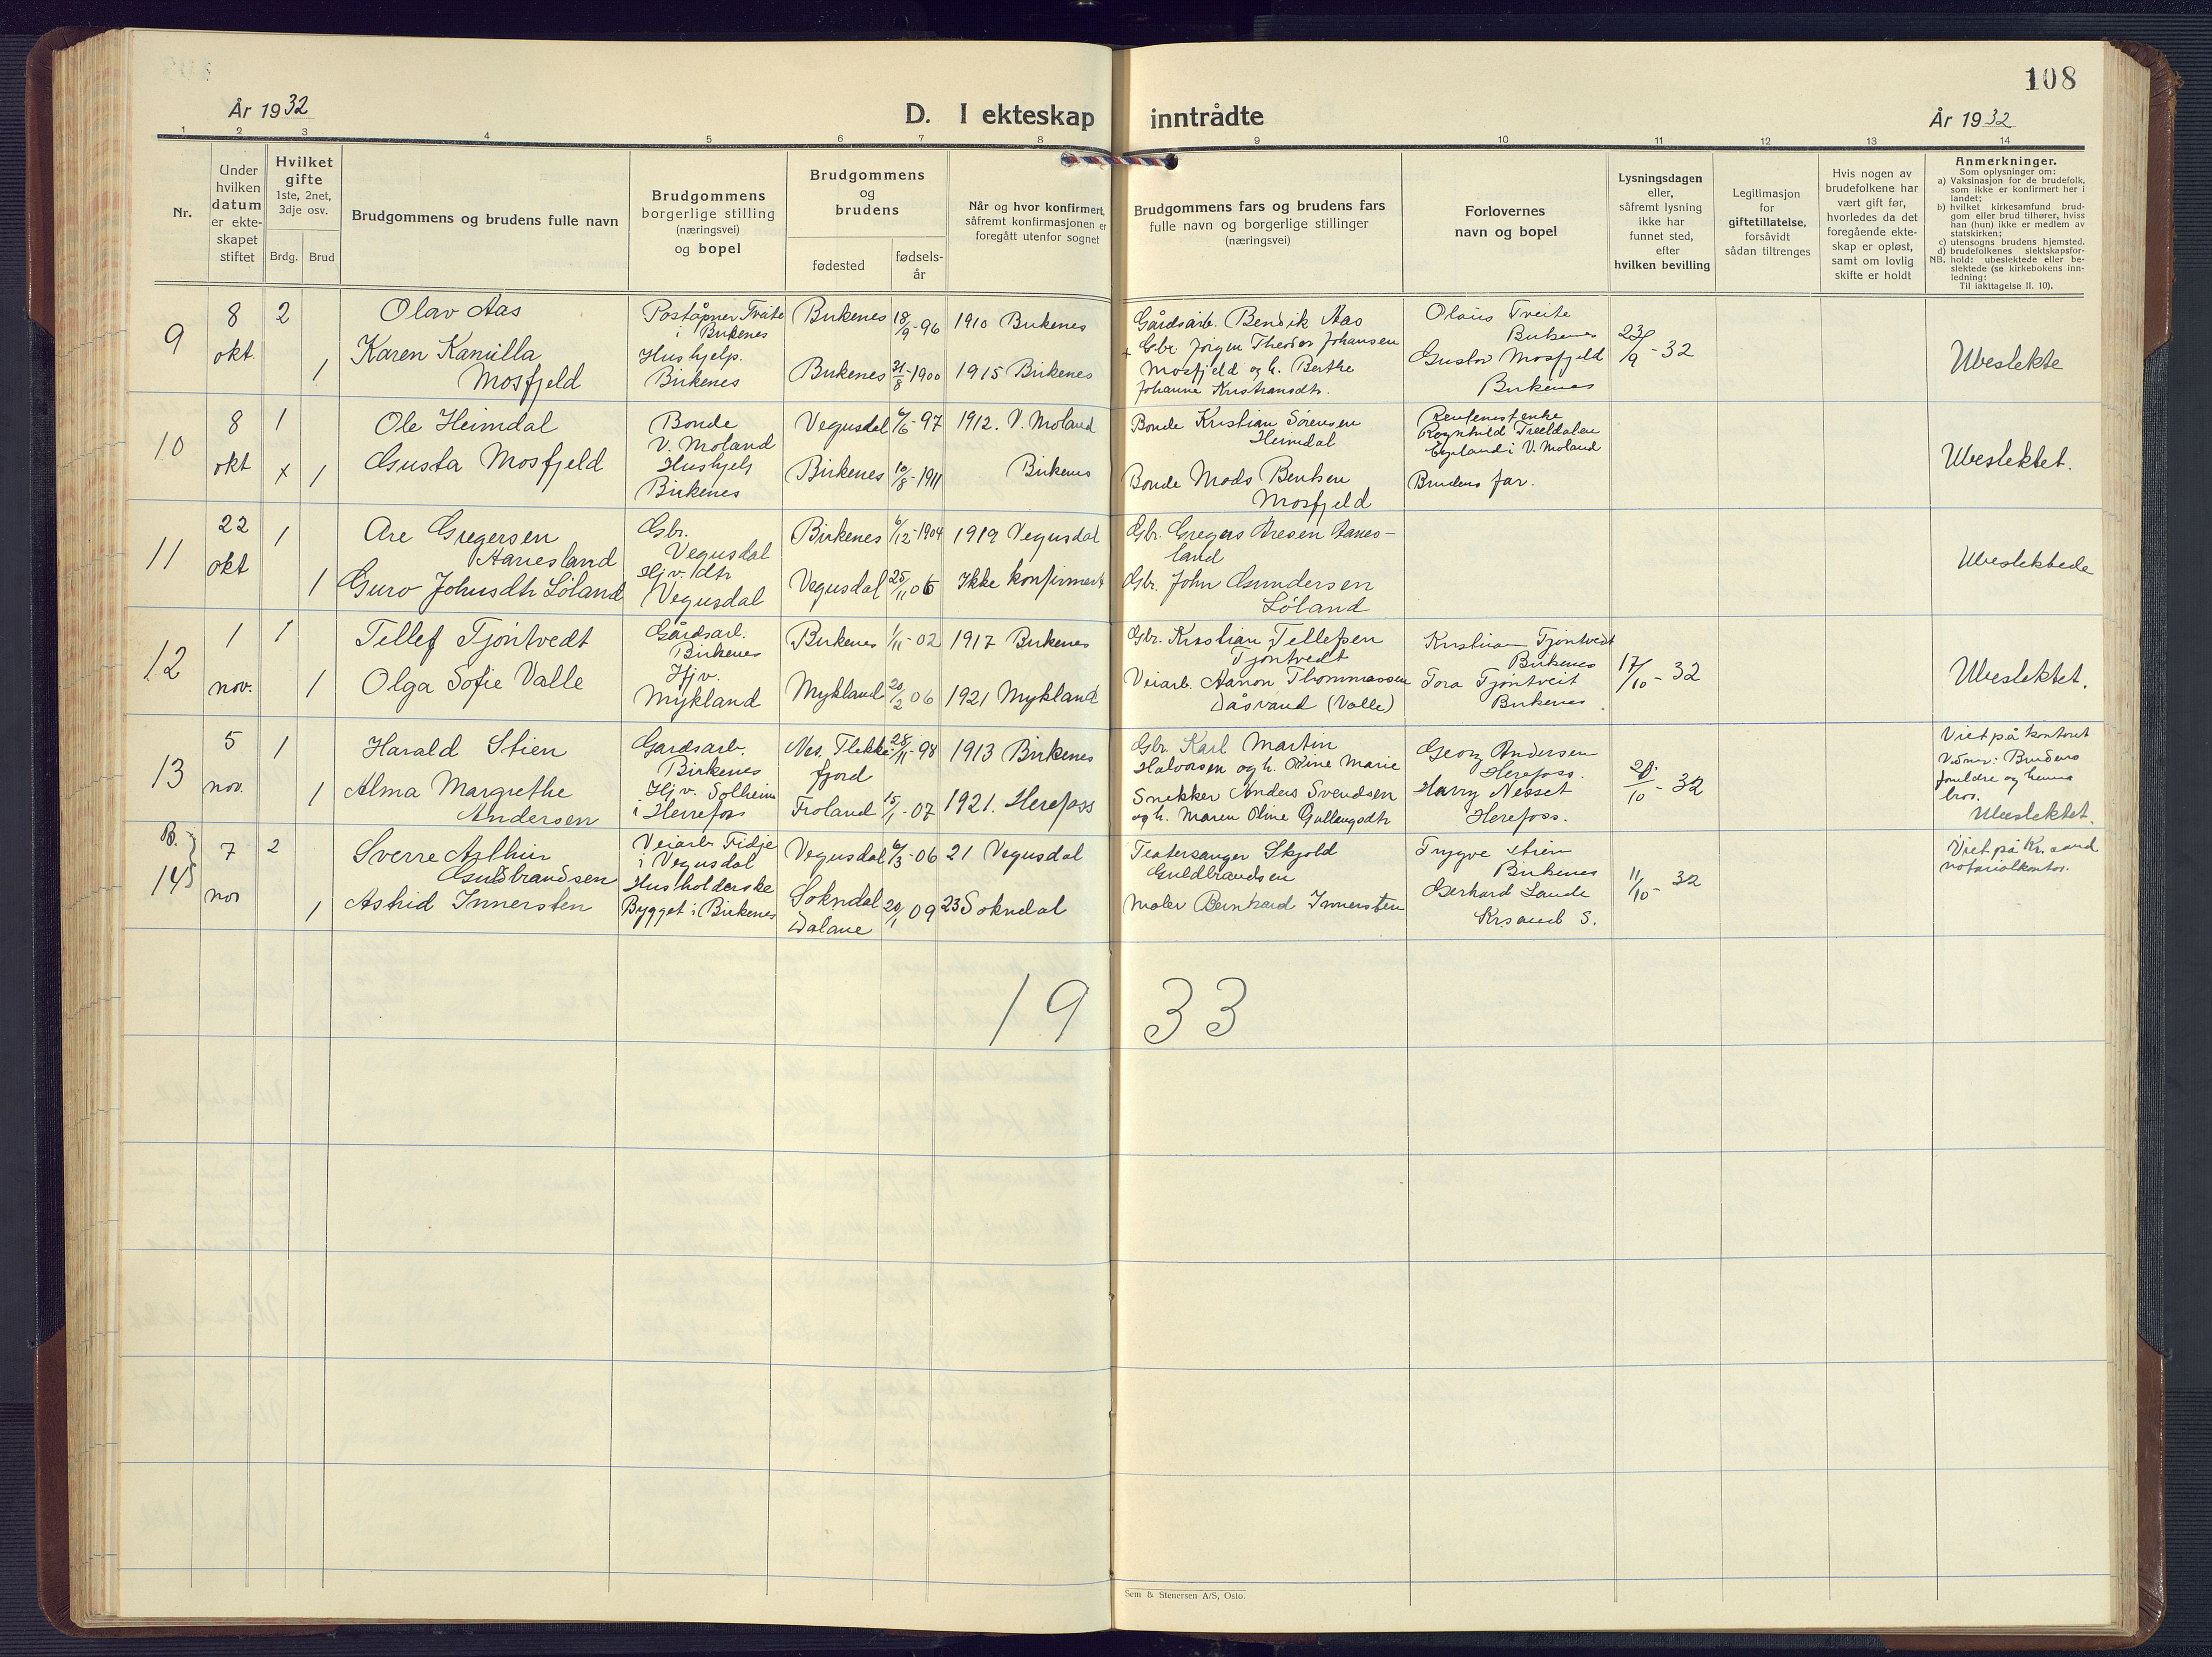 108
År 1932
D. I ekteskap
inntrådte
År 1932
1 2 3 4 5 6 7 8 9 10 11 12 13 14
Nr.
Under
hvilken
datum
er ekte-
skapet
stiftet
Hvilket
gifte
1ste, 2net,
3dje osv.
Brdg. Brud
Brudgommens og brudens fulle navn
Brudgommens
borgerlige stilling
(næringsvei)
og bopel
Brudgommens
og
brudens
fødested
fødsels-
år
Når og hvor konfirmert,
såfremt konfirmasjonen er
foregått utenfor sognet
Brudgommens fars og brudens fars
fulle navn og borgerlige stillinger
(næringsvei)
Forlovernes
navn og bopel
Lysningsdagen
eller,
såfremt lysning
ikke har
funnet sted,
efter
hvilken bevilling
Legitimasjon
for
giftetillatelse,
forsåvidt
sådan tiltrenges
Hvis nogen av
brudefolkene har
vært gift før,
hvorledes da det
foregående ekte-
skap er opløst,
samt om lovlig
skifte er holdt
Anmerkninger.
Som oplysninger om:
a) Vaksinasjon for de brudefolk,
som ikke er konfirmert her i
landet;
b) hvilket kirkesamfund brud-
gom eller brud tilhører, hviss
han (hun) ikke er medlem av
statskirken;
c) utensogns brudens hjemsted.
d) brudefolkenes slektskapsfor-
NB. hold: ubeslektede eller be-
slektede (se kirkebokens inn-
ledning:
Til iakttagelse II. 10).
9
8
okt.
2
1
Olav Aas
Karen Kamilla
Mosfjeld
Poståpner Tveite
i Birkenes
Hushjelp.
Birkenes
Birkenes 18/9-96 1910 Birkenes
Birkenes 31/8-1900 1915 Birkenes
Gårdsarb. Bendik Aas
+ Gbr. Jørgen Theodor Johansen
Mosfjeld og h. Berthe
Johanne Kristiansdtr.
Olaus Tveite
Birkenes
Gustav Mosfjeld
Birkenes
23/9-32
Ubeslekte
10
8
okt
1
x 1
Ole Heimdal
Gusta Mosfjeld
Bonde
V. Moland
Hushjelp
Birkenes
Vegusdal 6/6-97 1912. V. Moland
Birkenes 10/8-1911 Birkenes
Bonde Kristian Sørensen
Heimdal
Bonde Mads Bentsen
Mosfjeld
Ragnhild Treldalen
i V. Moland
Brudens far.
Ubeslektet.
11
22
okt
1
1
Are Gregersen
Aanesland
Guro Johnsdtr Løland
Gbr.
Vegusdal
Hjv. dtr
Vegusdal
Birkenes 6/12-1904 1919 Vegusdal
Vegusdal 25/11 06 Ikke konfirmert
Gbr. Gregers Aresen Aanes-
land
Gbr. John Gundersen
Løland
Ubeslektede
12
1
nov.
1
1
Tellef Tjøntvedt
Olga Sofie Valle
Gårdsarb.
Birkenes
Hjv.
Mykland
Birkenes 1/11-02 1917 Birkenes
Mykland 20/2 06 1921 Mykland
Gbr. Kristian Tellefsen
Tjøntvedt
Veiarb. Aanon Thommassen
Dåsvand (Valle)
Kristian Tjøntvedt
Birkenes
Tora Tjøntveit
Birkenes.
17/10-32
Ubeslektet.
13
5
nov.
1
1
Harald Stien
Alma Margrethe
Andersen
Gardsarb.
Birkenes
Hjv. Solheim
i Herrefoss
Nes. Flekke-
fjord
28/11-98 1913 Birkenes
Froland 15/1-07 1921. Herefoss
Gbr. Karl Martin
Halvorsen og h. Oline Marie
Snikker Anders Svendsen
og h. Maren Oline Gullaugsdtr
Georg Andersen
Herefoss.
Harry Nesset
Herefoss.
20/10-32
Viet på kontoret
Vidner: Brudens
foreldre og hennes
bror.
Ubeslektet.
B.
14
7
nov
2
1
Sverre Arthur
Guldbrandsen
Astrid Innersten
Veiarb. Fidje
i Vegusdal
Husholderske
Bygget i Birkenes
Vegusdal 6/3-06 21 Vegusdal
Sokndal
Dalane
20/1 09 23 Sokndal
Teatersanger Skjold
Guldbrandsen
Maler Bernhard Innersten
Trygve Stien
Birkenes
Gerhard Lande
Krsand S.
11/10-32
Viet på Kr.sand
notarialkontor.
1933
Sem & Stenersen A/S, Oslo.